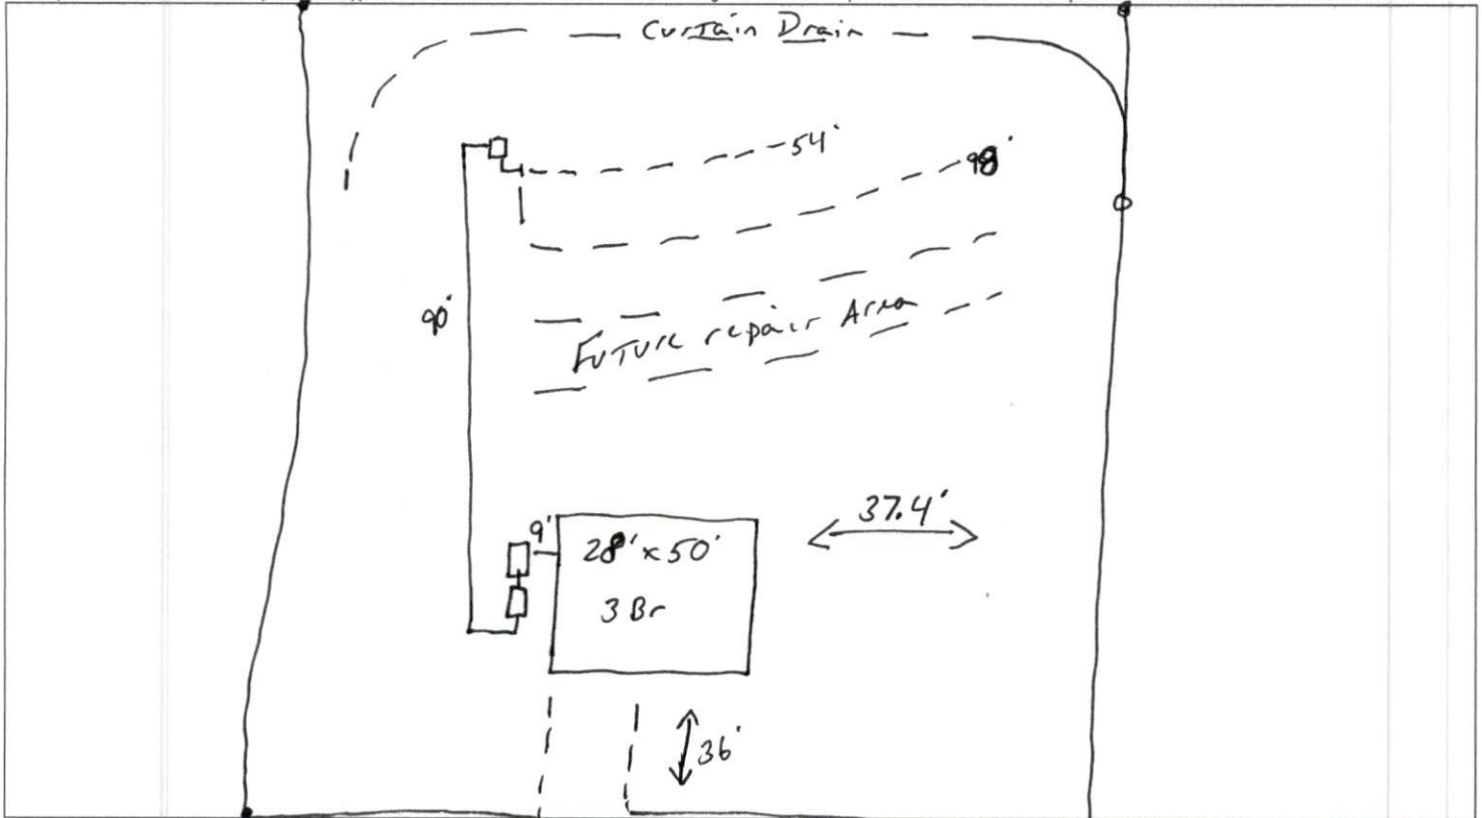 Curtain Drain
54'
98'
90'
Future repair Area
37.4'
9'
28' x 50'
3 Br
36'